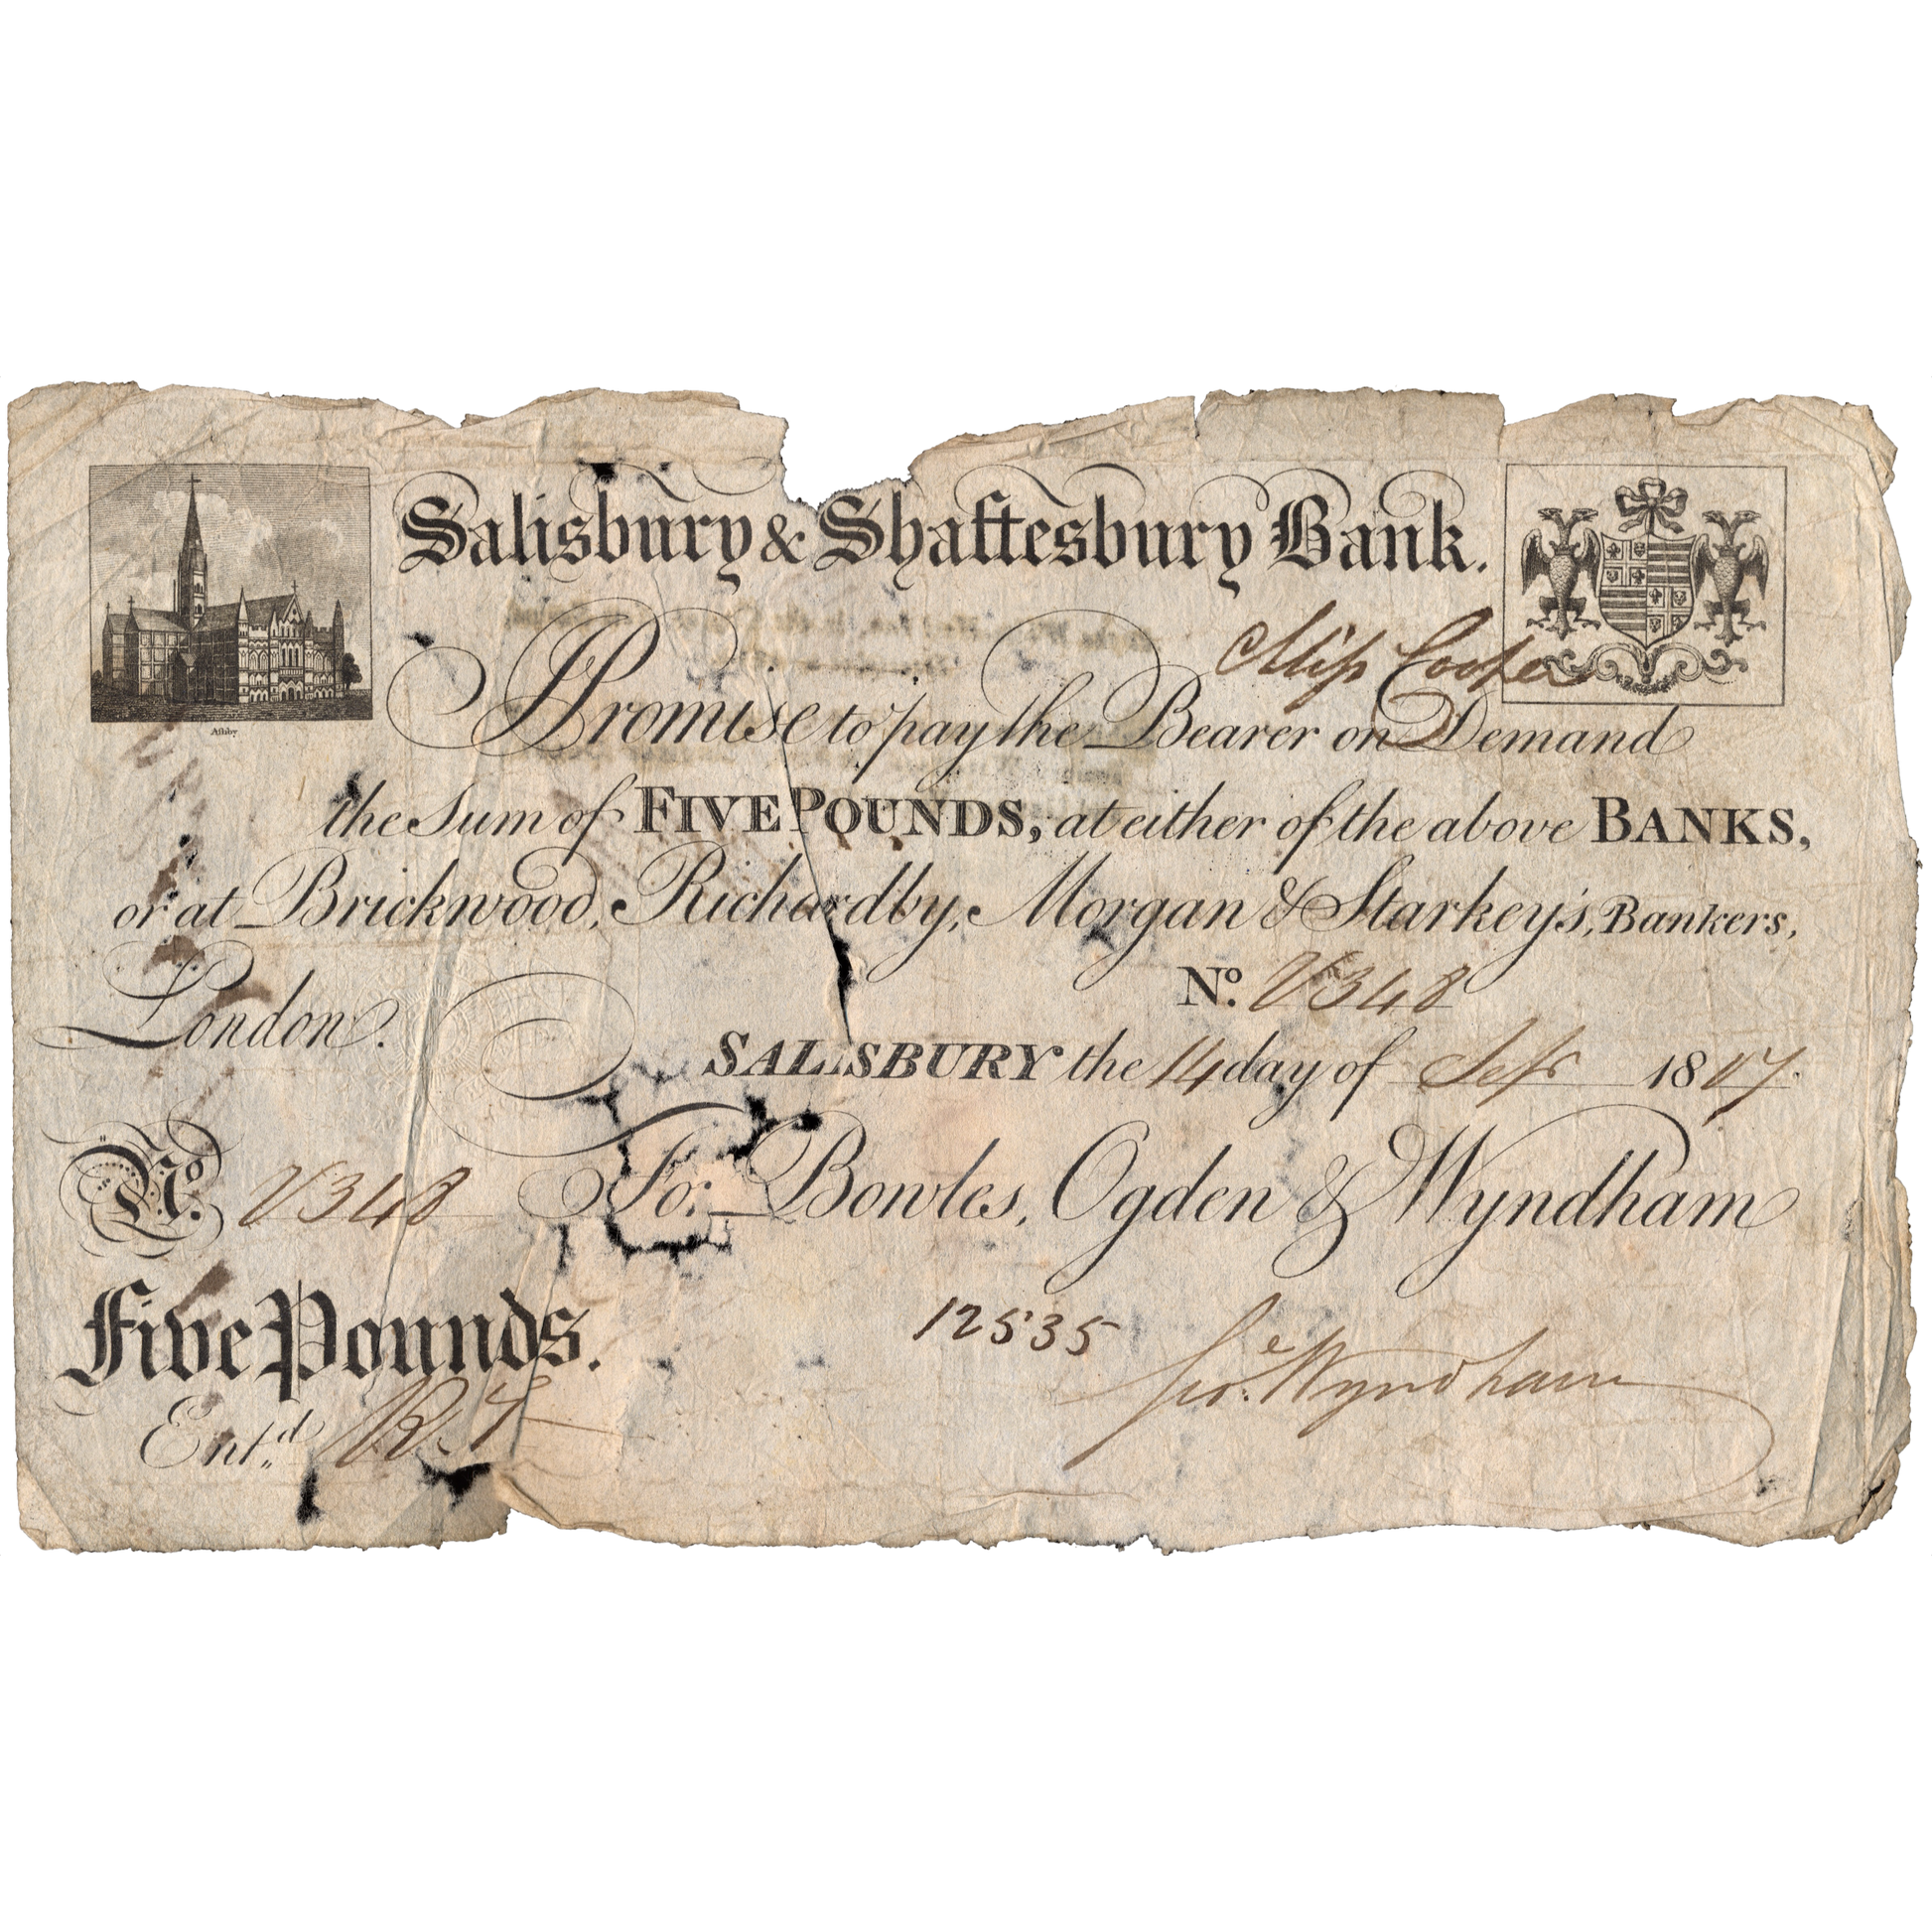 Salisbury & Shaftesbury Bank.
Ashby
Miss Cooper
I Promise to pay the Bearer on Demand
the Sum of FIVE POUNDS, at either of the above BANKS,
or at Brickwood, Richardby, Morgan & Starkey's, Bankers,
London.
No. V348
SALISBURY the 14 day of Sep 1807.
No. V348
For Bowles, Ogden & Wyndham
Five Pounds.
12535
Geo: Wyndham
Entd